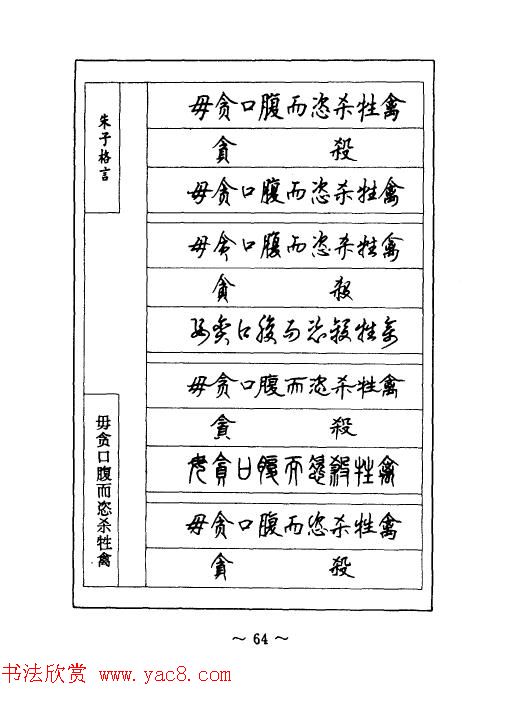 朱子格言
毋贪口腹而恣杀牲禽
毋贪口腹而恣杀牲禽
貪 殺
毋贪口腹而恣杀牲禽
毋贪口腹而恣杀牲禽
貪 殺
毋贪口腹而恣殺牲禽
毋贪口腹而恣杀牲禽
貪 殺
毋貪口腹而恣殺牲禽
毋贪口腹而恣杀牲禽
貪 殺
～ 64 ～
书法欣赏 www.yac8.com